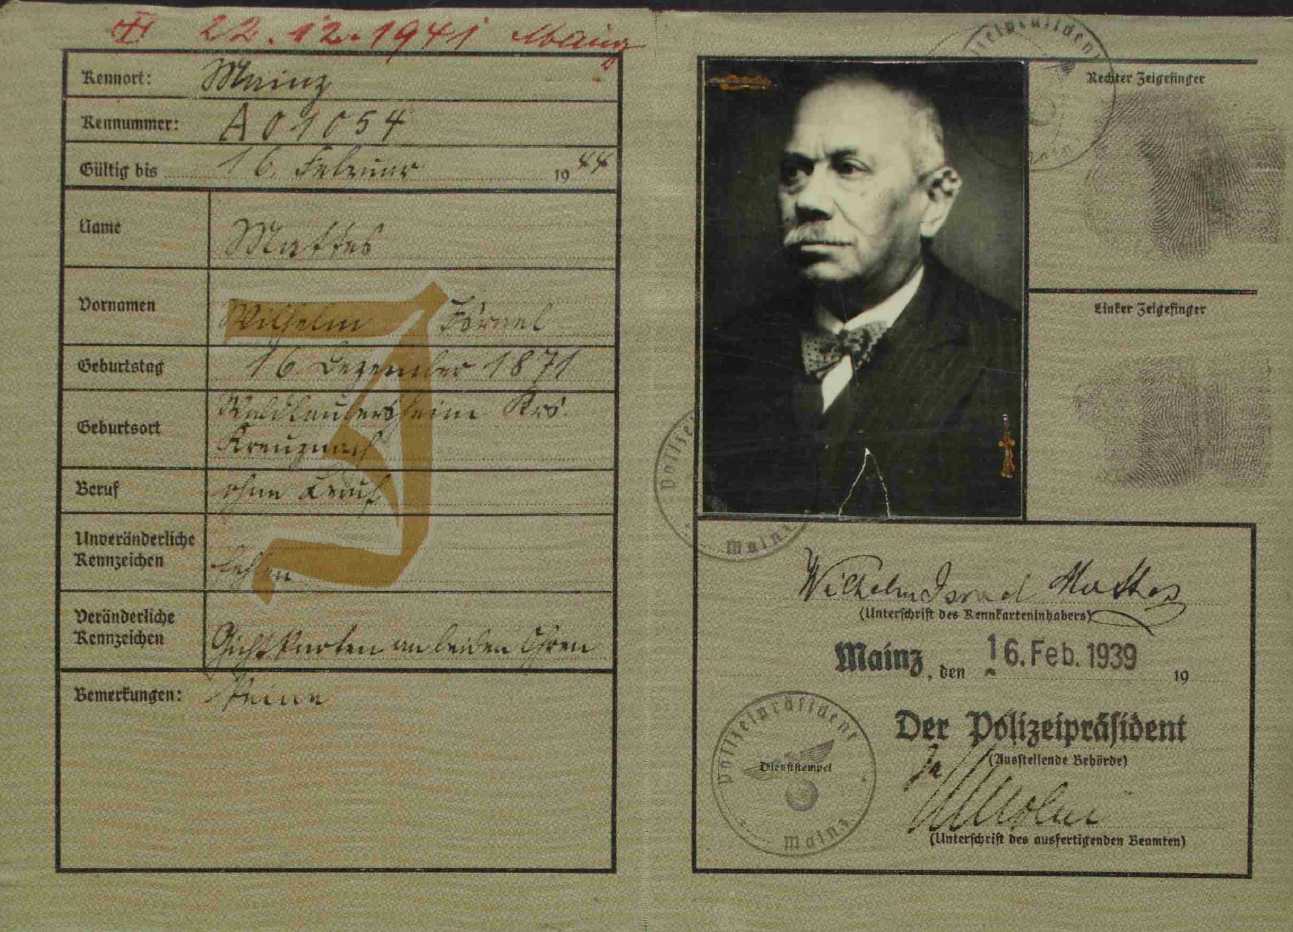 22.12.1941 Mainz
Kennort: Mainz
Kennummer: A01054
Gültig bis 16. Februar 1944
Name Mattes
Vornamen Wilhelm Israel
Geburtstag 16 Dezember 1871
Geburtsort Waldlaubersheim Krs.
Kreuznach
Beruf ohne Beruf
Unveränderliche
Kennzeichen fehlen
Veränderliche
Kennzeichen Gichtknoten an beiden Ohren
Bemerkungen: Keine
J
Rechter Zeigefinger
Linker Zeigefinger
Polizeipräsident
Mainz
Wilhelm Israel Mattes
(Unterschrift des Kennkarteninhabers)
Mainz, den 16. Feb. 1939 19
Der Polizeipräsident
(Ausstellende Behörde)
Polizeipräsident
Dienststempel
Mainz
(Unterschrift des ausfertigenden Beamten)